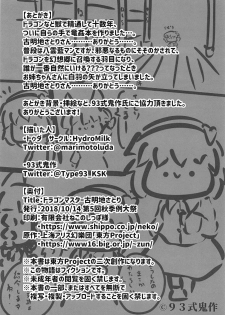 【あとがき】
ドラゴンなど獣で精通して十数年、
ついに自らの手で竜姦本を作りました…。
古明地さとりさん……………ありがとう……
普段なら八雲藍ですが、邪悪なるものにそそのかされて、
ドラゴンを幻想郷に召喚する羽目になり、
誰が一番自然にいける???ってなったとき
お姉ちゃんさんに白羽の矢が立ってしまいました。
古明地さとりさん……………ありがとう……
あとがき背景・挿絵など、93式鬼作氏にご協力頂きました。
ありがとうございます!
【描いた人】
・トッタ サークル:HydroMilk
Twitter:@marimotoluda
・93式鬼作
Twitter:@Type93_KSK
【奥付】
Title:ドラゴンマスター古明地さとり
発行-2018/10/14 第5回秋季例大祭
印刷:有限会社なねこのしっぽ様
・https://www.shippo.co.jp/neko/
原作:上海アリス幻樂団「東方Project」
・https://www16.big.or.jp/~zun/
※本書は東方Projectの二次創作になります。
※この物語はフィクションです。
※未成年者の閲覧を固く禁じます。
※本書の一部、またはすべてを無断で
複写・複製・アップロードすることを固く禁じます。
©93式鬼作